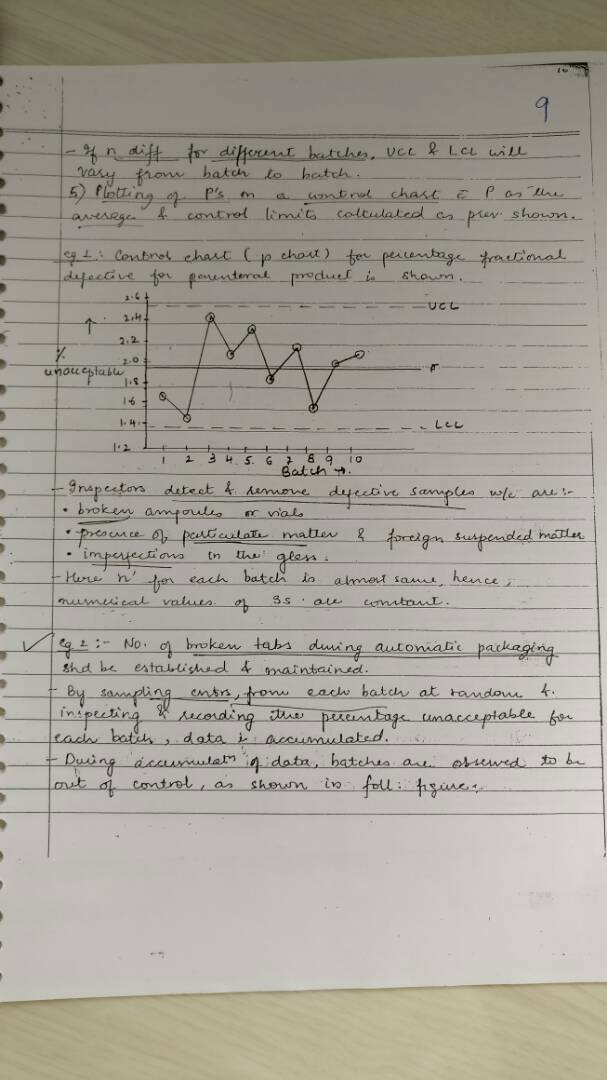 10
9
- If n diff for different batches, UCL & LCL will
vary from batch to batch.
5) Plotting of P's on a control chart c̄ P as the
average & control limits calculated as prev shown.
eg 1: Control chart (p chart) for percentage fractional
defective for parenteral product is shown.
2.6
UCL
2.4
↑
2.2
%
2.0
unacceptable
1.8
1.6
1.4
LCL
1.2
1 2 3 4 5. 6 7 8 9 10
Batch →.
- Inspectors detect & remove defective samples w/c are:-
• broken ampoules or vials
• presence of particulate matter & foreign suspended matter
• imperfections in the glass.
- Here 'n' for each batch is almost same, hence,
numerical values of 3s are constant.
eg 2:- No. of broken tabs during automatic packaging
shd be established & maintained.
- By sampling cntrs, from each batch at random &
inspecting & recording the percentage unacceptable for
each batch, data is accumulated.
- During accumulatn of data, batches are observed to be
out of control, as shown in foll: figure.